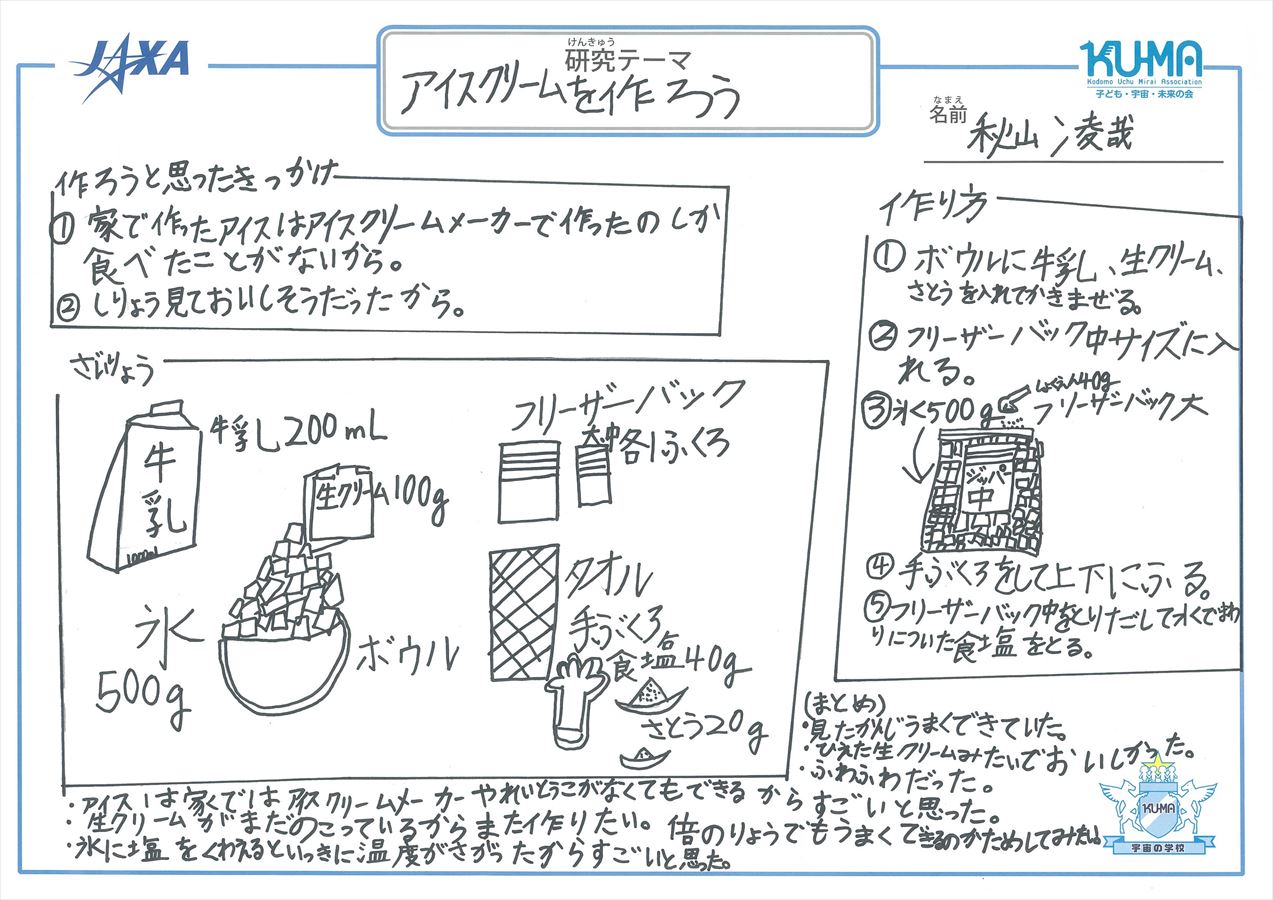 JAXA
けんきゅう
研究テーマ
アイスクリームを作ろう
KU-MA
Kodomo Uchu Mirai Association
子ども・宇宙・未来の会
なまえ
名前
秋山 凌哉
作ろうと思ったきっかけ
① 家で作ったアイスはアイスクリームメーカーで作ったのしか
食べたことがないから。
② しりょう見ておいしそうだったから。
ざいりょう
牛乳
1000ml
牛乳200mL
生クリーム100g
氷
500g
ボウル
フリーザーバック
大中各1ふくろ
タオル
手ぶくろ
食塩40g
さとう20g
作り方
① ボウルに牛乳、生クリーム、
さとうを入れてかきまぜる。
② フリーザーバック中サイズに入
れる。
③ 氷く500g
しょくえん40g
フリーザーバック大
ジッパー
中
④ 手ぶくろをして上下にふる。
⑤ フリーザーバック中をとりだして水くでまわ
りについた食塩をとる。
(まとめ)
・見たかんじうまくできていた。
・ひえた生クリームみたいでおいしかった。
・ふわふわだった。
・アイスは家くではアイスクリームメーカーやれいとうこがなくてもできるからすごいと思った。
・生クリームがまだのこっているからまた作りたい。倍のりょうでもうまくできるのかためしてみたい。
・氷に塩をくわえるといっきに温度がさがったからすごいと思った。
KU-MA
宇宙の学校